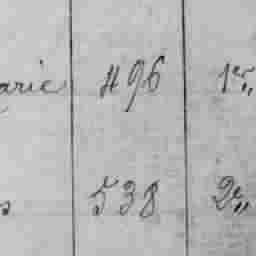 arie 496 1er„
s 538 2e„